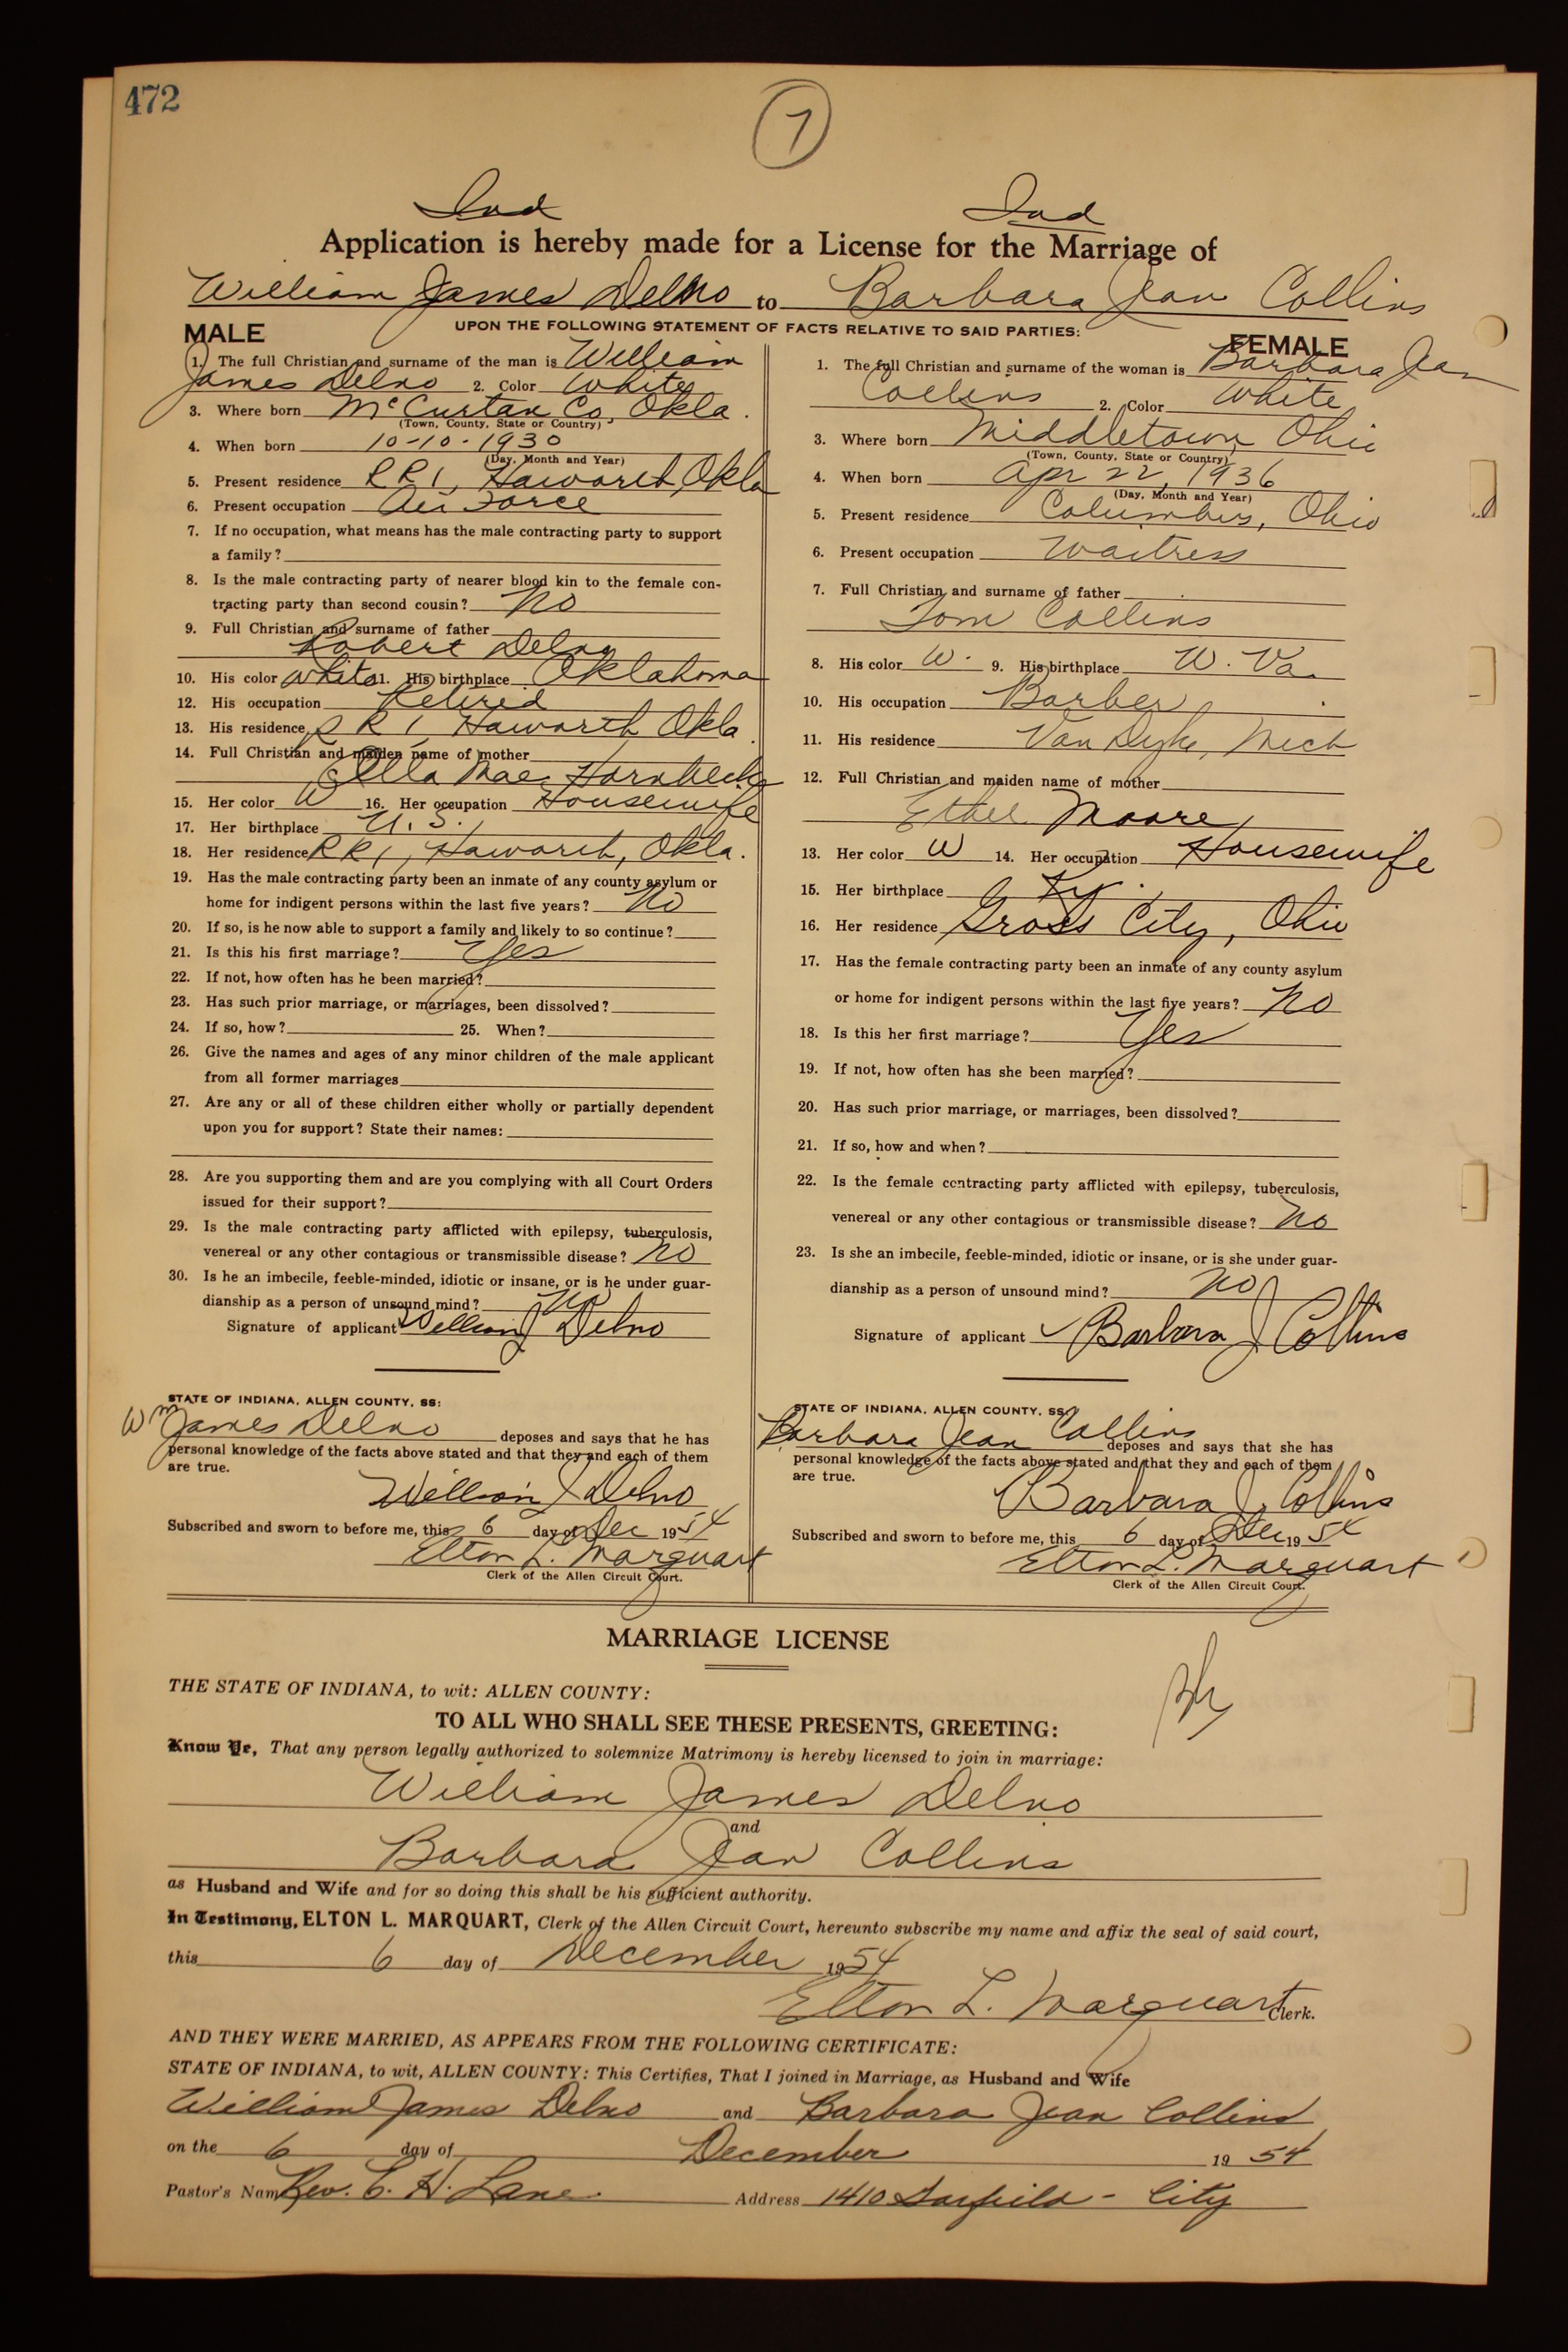 472
7
Ind Ind
Application is hereby made for a License for the Marriage of
William James Delno to Barbara Jean Collins
UPON THE FOLLOWING STATEMENT OF FACTS RELATIVE TO SAID PARTIES:
MALE
1. The full Christian and surname of the man is William
James Delno 2. Color White
3. Where born McCurtan Co, Okla.
(Town, County, State or Country)
4. When born 10-10-1930
(Day, Month and Year)
5. Present residence RR1, Haworth, Okla
6. Present occupation Air Force
7. If no occupation, what means has the male contracting party to support
a family?
8. Is the male contracting party of nearer blood kin to the female con-
tracting party than second cousin? No
9. Full Christian and surname of father
Robert Delno
10. His color White 11. His birthplace Oklahoma
12. His occupation Retired
13. His residence RR1, Haworth Okla
14. Full Christian and maiden name of mother
Ella Mae
15. Her color W 16. Her occupation Housewife
17. Her birthplace U.S.
18. Her residence RR1, Haworth, Okla.
19. Has the male contracting party been an inmate of any county asylum or
home for indigent persons within the last five years? No
20. If so, is he now able to support a family and likely to so continue?
21. Is this his first marriage? Yes
22. If not, how often has he been married?
23. Has such prior marriage, or marriages, been dissolved?
24. If so, how? 25. When?
26. Give the names and ages of any minor children of the male applicant
from all former marriages
27. Are any or all of these children either wholly or partially dependent
upon you for support? State their names:
28. Are you supporting them and are you complying with all Court Orders
issued for their support?
29. Is the male contracting party afflicted with epilepsy, tuberculosis,
venereal or any other contagious or transmissible disease? No
30. Is he an imbecile, feeble-minded, idiotic or insane, or is he under guar-
dianship as a person of unsound mind? No
Signature of applicant William J Delno
STATE OF INDIANA, ALLEN COUNTY, SS:
Wm James Delno deposes and says that he has
personal knowledge of the facts above stated and that they and each of them
are true.
William J Delno
Subscribed and sworn to before me, this 6 day of Dec 1954
Elton L. Marquart
Clerk of the Allen Circuit Court.
FEMALE
1. The full Christian and surname of the woman is Barbara Jean
Collins 2. Color White
3. Where born Middletown, Ohio
(Town, County, State or Country)
4. When born Apr 22, 1936
(Day, Month and Year)
5. Present residence Columbus, Ohio
6. Present occupation Waitress
7. Full Christian and surname of father
Tom Collins
8. His color W. 9. His birthplace W. Va.
10. His occupation Barber
11. His residence Van Dyke, Mich
12. Full Christian and maiden name of mother
Ethel Moore
13. Her color W 14. Her occupation Housewife
15. Her birthplace Ky.
16. Her residence City, Ohio
17. Has the female contracting party been an inmate of any county asylum
or home for indigent persons within the last five years? No
18. Is this her first marriage? Yes
19. If not, how often has she been married?
20. Has such prior marriage, or marriages, been dissolved?
21. If so, how and when?
22. Is the female contracting party afflicted with epilepsy, tuberculosis,
venereal or any other contagious or transmissible disease? No
23. Is she an imbecile, feeble-minded, idiotic or insane, or is she under guar-
dianship as a person of unsound mind? No
Signature of applicant Barbara J Collins
STATE OF INDIANA, ALLEN COUNTY, SS:
Barbara Jean Collins deposes and says that she has
personal knowledge of the facts above stated and that they and each of them
are true.
Barbara J. Collins
Subscribed and sworn to before me, this 6 day of Dec 1954
Elton L. Marquart
Clerk of the Allen Circuit Court.
MARRIAGE LICENSE
THE STATE OF INDIANA, to wit: ALLEN COUNTY:
TO ALL WHO SHALL SEE THESE PRESENTS, GREETING:
Know Ye, That any person legally authorized to solemnize Matrimony is hereby licensed to join in marriage:
William James Delno
and
Barbara Jean Collins
as Husband and Wife and for so doing this shall be his sufficient authority.
In Testimony, ELTON L. MARQUART, Clerk of the Allen Circuit Court, hereunto subscribe my name and affix the seal of said court,
this 6 day of December 1954
Elton L. Marquart Clerk.
AND THEY WERE MARRIED, AS APPEARS FROM THE FOLLOWING CERTIFICATE:
STATE OF INDIANA, to wit, ALLEN COUNTY: This Certifies, That I joined in Marriage, as Husband and Wife
William James Delno and Barbara Jean Collins
on the 6 day of December 1954
Pastor's Name Rev. C. H. Lane Address 1410 Garfield - City